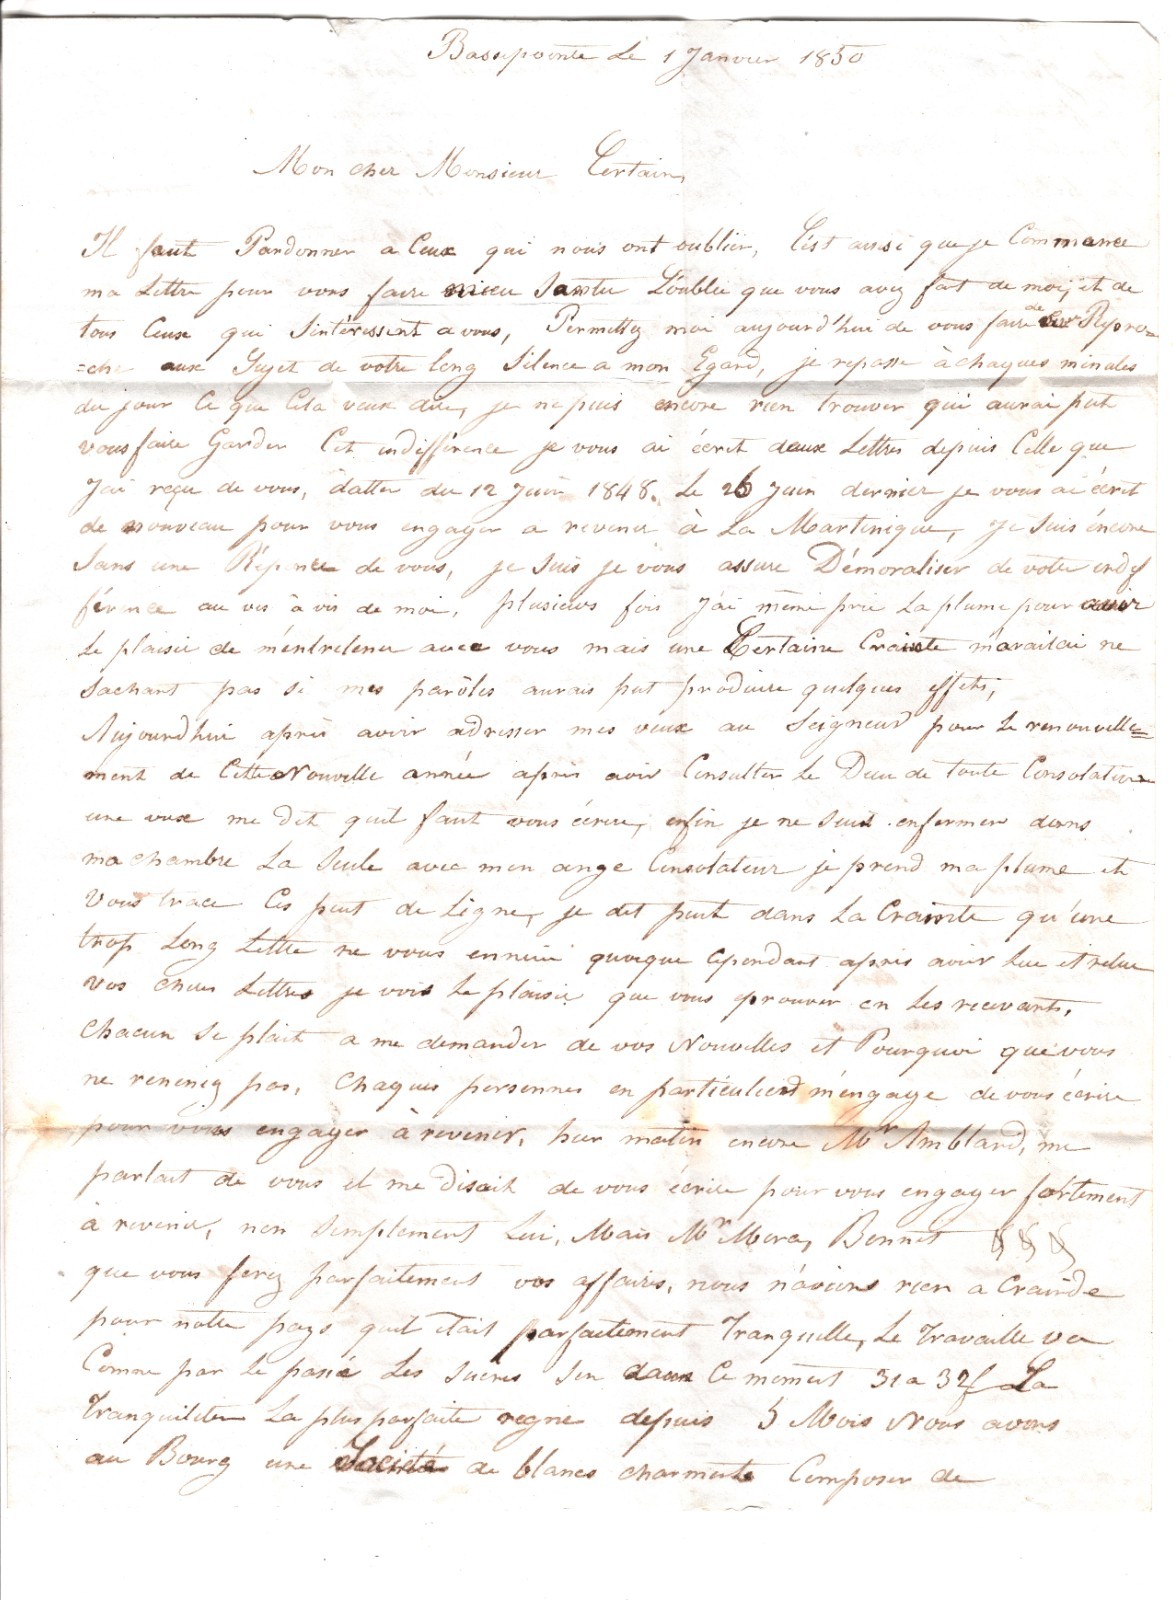 Bassepointe Le 1 Janvier 1850
Mon cher Monsieur Certain,
Il faut Pardonner a Ceux qui nous ont oublier, C'est ainsi que je Commance
ma Lettre pour vous faire mieu Santir L'oublie que vous avez fait de moi, et de
tous Ceux qui S'intéressent a vous, Permettez moi aujourd'hui de vous faire de Repro=
=che aux Sujet de votre long Silence a mon Egard, je repasse à chaques minutes
du jour Ce que Cela veux dire, je ne puis encore rien trouver qui aurai put
vous faire Garder Cet indifférence je vous ai écrit deux Lettres depuis Celle que
J'ai reçu de vous, datter du 12 Juin 1848. Le 26 Juin dernier je vous ai écrit
de nouveau pour vous engager a revenir à La Martinique, je Suis éncore
Sans une Réponce de vous, je Suis je vous assure Démoraliser de votre indif
férence au vis à vis de moi, plusieurs fois J'ai même prie La plume pour avoir
Le plaisir de m'éntretenir avec vous mais une Certaine Crainte m'arraitai ne
Sachant pas Si mes parôles aurais put produire quelques effets,
Aujourd'hui après avoir adresser mes veux au Seigneur pour Le renouvelle=
ment de Cette Nouvelle année apres avoir Consulter Le Dieu de toute Consolation
une voix me dit qu'il faut vous écrire, enfin je me Suis enfermer dans
ma chambre La Seule avec mon ange Consolateur je prend ma plume et
Vous trace Ces peut de Ligne, je dit peut dans La Crainte qu'une
trop Long Lettre ne vous ennuie quoique Cependant après avoir Lue et relue
Vos chers Lettres je vois Le plaisir que vous éprouver en Les recevants,
Chacun Se plait a me demander de vos Nouvelles et Pourquoi que vous
ne reveniez pas, Chaques personnes en particulierd m'engage de vous écrire
pour vous engager à revenir, hier matin encore Mr Ambland, me
parlait de vous il me disait de vous écrire pour vous engager fortement
à revenir, non Semplement Lui, Mais Mr Bonnet
que vous ferez parfaitement vos affaires, nous n'avions rien a Crainde
pour notre pays quil était parfaitement Tranquille, Le Travaille va
Comme par Le passé Les Sucres Son dans Ce moment 31 a 32f La
Tranquiliter La plus parfaite regne depuis 5 Mois Nous avons
au Bourg une Société de blancs charmente Composer de